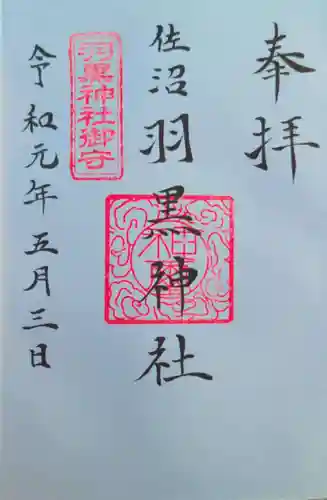 奉拝
佐沼
羽黒神社
羽黒神社御守
令和元年五月三日